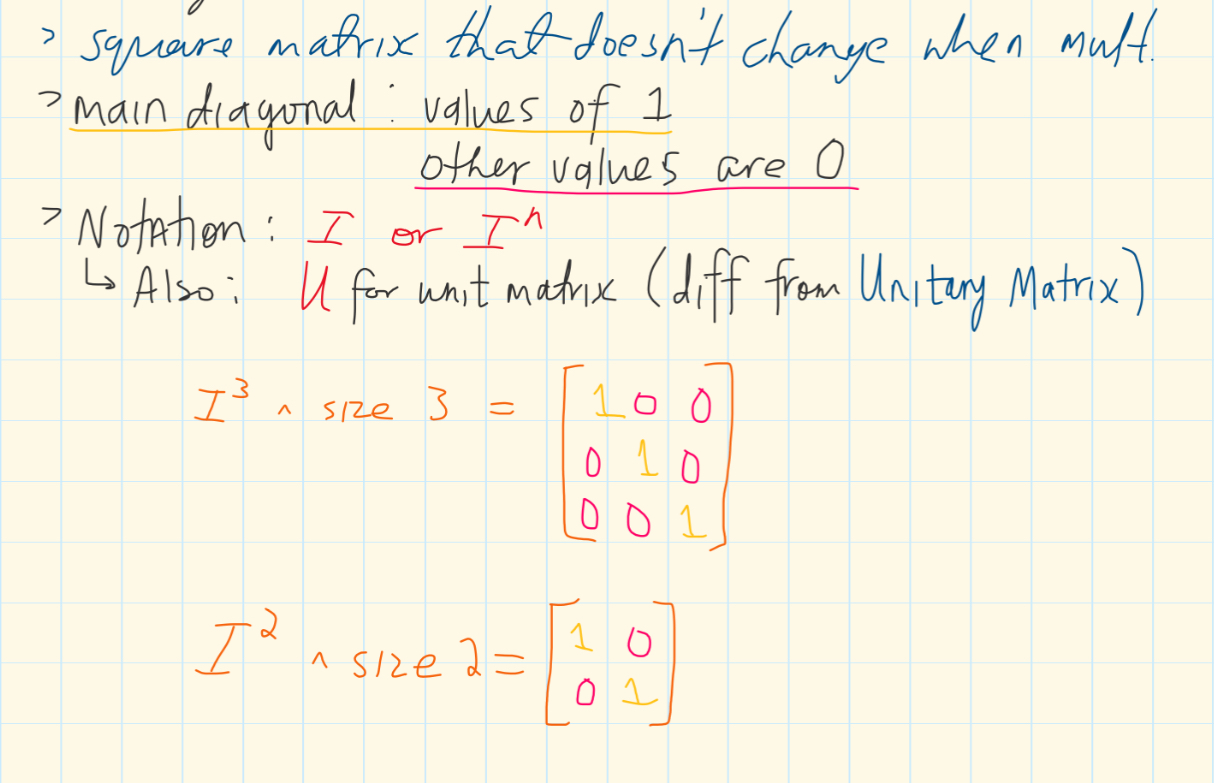 > square matrix that doesn't change when mult.
> main diagonal : values of 1
other values are 0
> Notation : I or Iⁿ
↳ Also : U for unit matrix (diff from Unitary Matrix)
I³ ^ size 3 = [1 0 0
0 1 0
0 0 1]
I² ^ size 2 = [1 0
0 1]